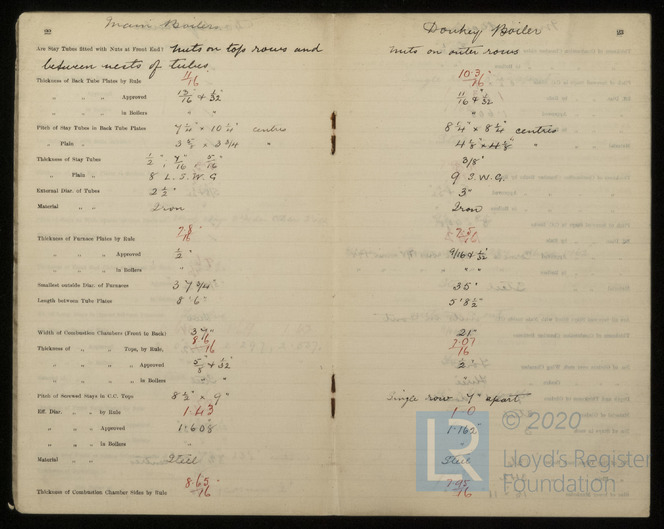 22
Main Boilers
Are Stay Tubes fitted with Nuts at Front End? Nuts on top rows and
between nests of tubes
Thickness of Back Tube Plates by Rule 11/16
„ „ „ Approved 13/16 & 1/32
„ „ „ in Boilers „ „
Pitch of Stay Tubes in Back Tube Plates 7 1/4" × 10 1/4" centres
„ Plain „ 3 5/8" × 3 3/4 "
Thickness of Stay Tubes 1/2", 7/16", 5/16"
„ Plain „ 8 L.S.W.G
External Diar. of Tubes 2 1/2"
Material „ Iron
Thickness of Furnace Plates by Rule 7.8/16
„ „ „ Approved 1/2"
„ „ „ in Boilers „
Smallest outside Diar. of Furnaces 37 3/4"
Length between Tube Plates 8' 6"
Width of Combustion Chambers (Front to Back)
Thickness of „ „ Tops, by Rule, 8.6/16
„ „ „ „ Approved 5/8" & 1/32"
„ „ „ „ in Boilers „ „
Pitch of Screwed Stays in C.C. Tops 8 1/2" × 9"
Eff. Diar. „ „ by Rule 1.43
„ „ „ Approved 1.608
„ „ „ in Boilers „
Material „ „ Steel
Thickness of Combustion Chamber Sides by Rule 8.65/16
23
Donkey Boiler
Nuts on outer rows
10.3/16
11/16 & 1/32
„
8 1/4" × 8 1/4" centres
4 1/8" × 4 1/8" "
3/8"
9 S.W.G.
3"
Iron
9/16 & 1/32
„ „
35"
5' 8 1/2"
21"
7.07/16
1/2"
„
Single row 7" apart
1.0
1.162"
„
Steel
7.95/16
© 2020
LR
Lloyd's Register
Foundation